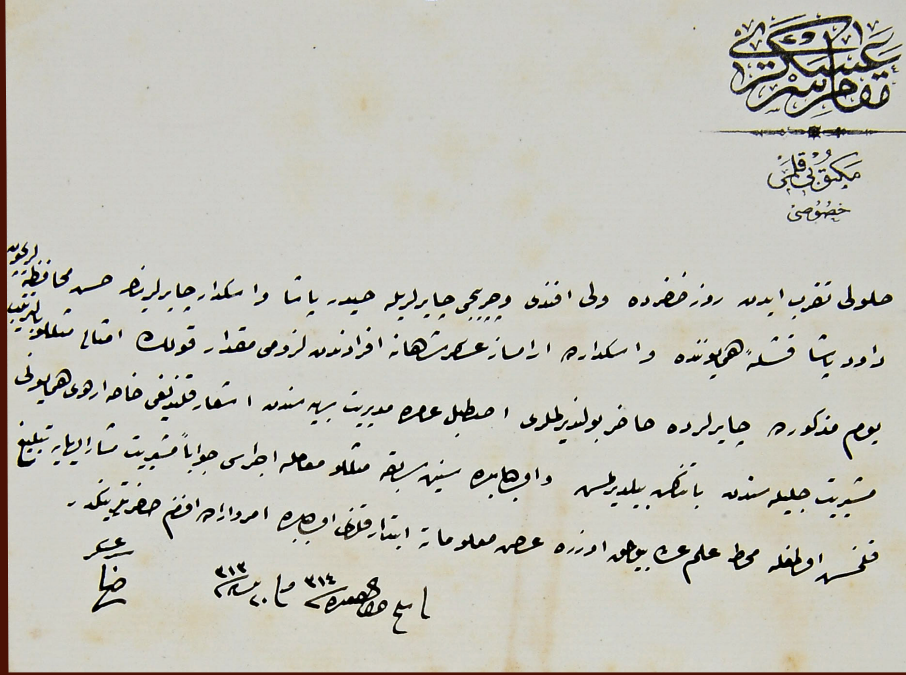 مقام سرعسكرى
مكتوبى قلمى
خصوصى
حلولى تقرب ايدن روز خضرده ولى افندى و چرپجى چايرلريله حيدر پاشا و اسكدار چايرلرينك حسن محافظه لريچون
داود پاشا قشلۀ همايوننده و اسكدارده آرام ساز عساكر شاهانه افرادندن لزومى مقدار قوللك امثالى مثللو بالترتيب
يوم مذكورده چايرلرده حاضر بولنديرلملرى اصطبل عامره مديريت سندن اشعار قلنديغى خاصه اردوى همايونى
مشيريت جليله سندن با تذكره بيلديرلمش و اولبابده سنين سابقه مثللو معامله اجراسى جواباً مشيريت مشار اليهايه تبليغ
قلنمش اولمغله محاط علم عالى بيورلمق اوزره عرض معلوماته ابتدار قلندى اولبابده امر و اراده افندم حضرتلرينكدر
فى ذى القعده ٣١٤ و فى نيسان ٣١٣
سرعسكر
رضا